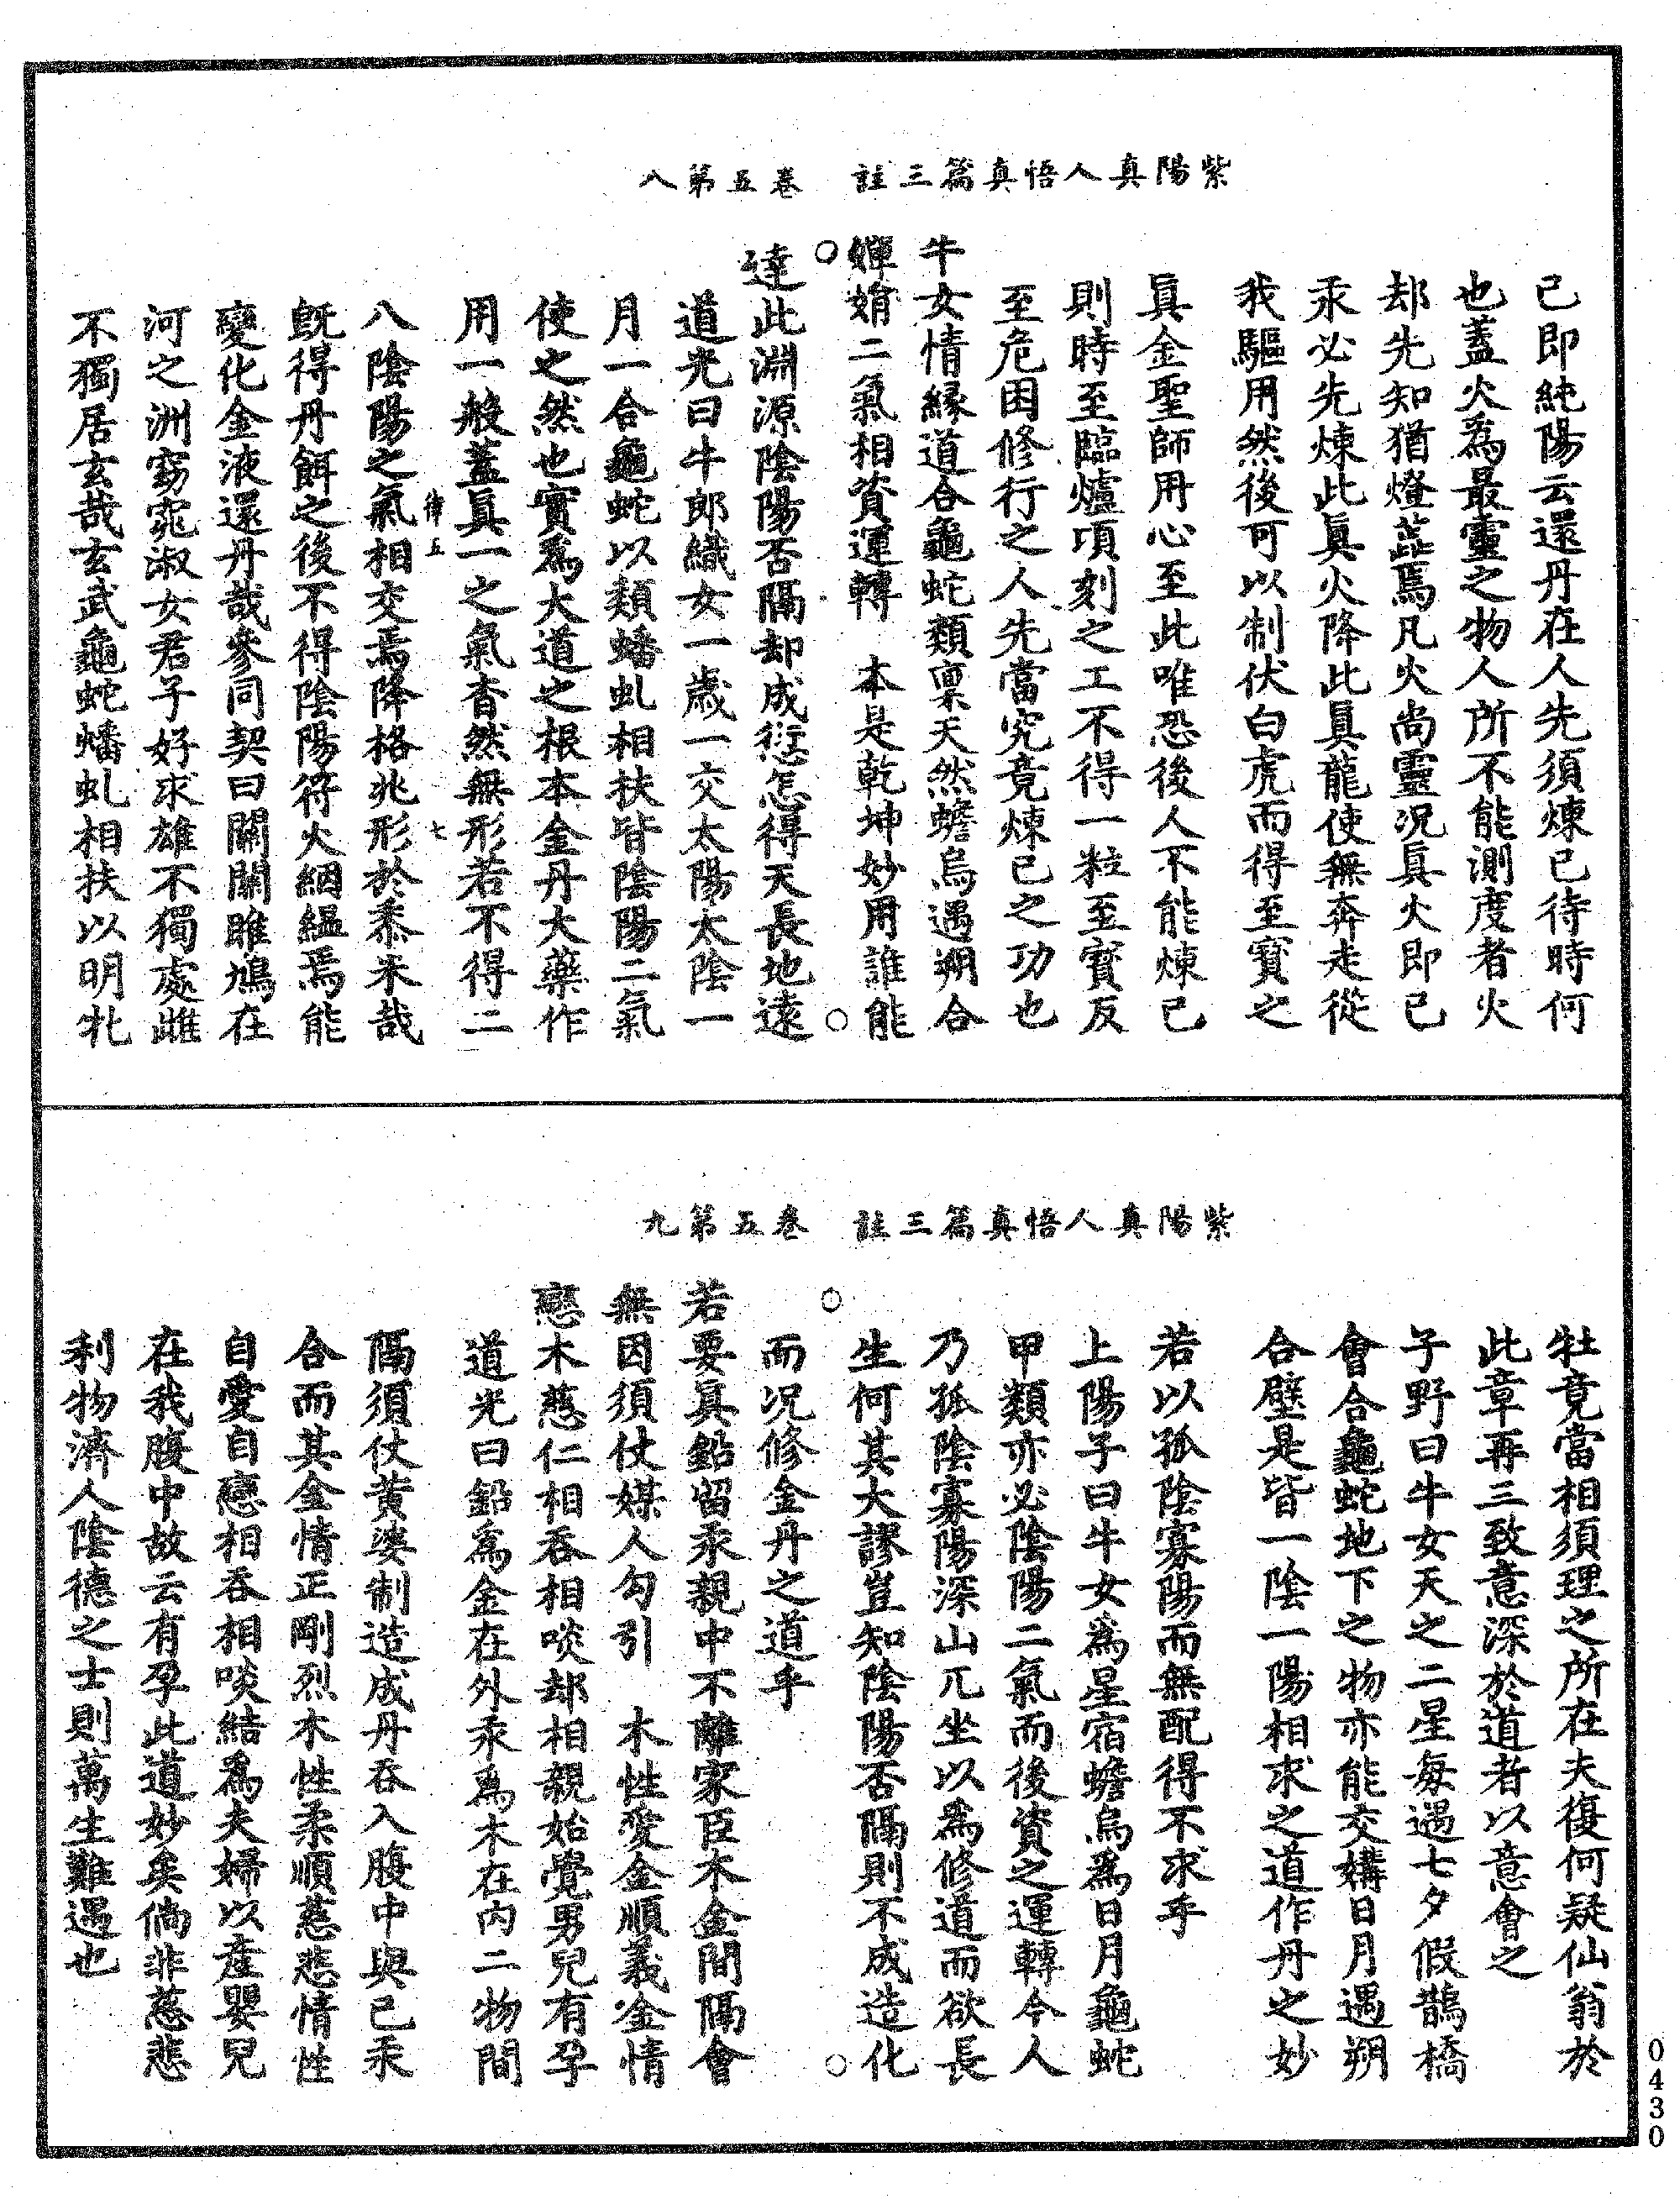 紫陽真人悟真篇三註　卷五第八
己即純陽云還丹在人先須煉已待時何
也蓋火爲最靈之物人所不能測度者火
却先知猶燈蕋焉凡火尚靈况眞火即已
汞必先煉此眞火降此眞龍使無奔走從
我驅用然後可以制伏白虎而得至寳之
眞金聖師用心至此唯恐後人不能煉己
則時至臨爐頃刻之工不得一粒至寳反
至危困修行之人先當究竟煉已之功也
牛女情緣道合龜蛇類稟天然蟾烏遇朔合
嬋娟二氣相資運轉　本是乾坤妙用誰能
達此淵源陰陽否隔却成愆怎得天長地遠
道光曰牛郎織女一歲一交太陽太陰一
月一合龜蛇以類蟠虬相扶皆陰陽二氣
使之然也實爲大道之根本金丹大藥作
用一般蓋眞一之氣杳然無形若不得二
律五　七
八陰陽之氣相交焉降格兆形於黍米哉
旣得丹餌之後不得陰陽符火絪緼焉能
變化金液還丹哉參同契曰關關雎鳩在
河之洲窈窕淑女君子好求雄不獨處雌
不獨居玄哉玄武龜蛇蟠虬相扶以明牝
紫陽真人悟真篇三註　卷五第九
牡竟當相須理之所在夫復何疑仙翁於
此章再三致意深於道者以意會之
子野曰牛女天之二星每遇七夕假鵲橋
會合龜蛇地下之物亦能交媾日月遇朔
合璧是皆一陰一陽相求之道作丹之妙
若以孤陰寡陽而無配得不求乎
上陽子曰牛女爲星宿蟾烏爲日月龜蛇
甲類亦必陰陽二氣而後資之運轉今人
乃孤陰寡陽深山兀坐以爲修道而欲長
生何其大謬豈知陰陽否隔則不成造化
而况修金丹之道乎
若要眞鉛留汞親中不離家臣木金間隔會
無因須仗媒人勾引　木性愛金順義金情
戀木慈仁相吞相啖却相親始覺男兒有孕
道光曰鉛爲金在外汞爲木在內二物間
隔須仗黃婆制造成丹吞入腹中與已汞
合而其金情正剛烈木性柔順慈悲情性
自愛自戀相吞相啖結爲夫婦以產嬰兒
在我腹中故云有孕此道妙矣倘非慈悲
利物濟人陰德之士則萬生難遇也
0430